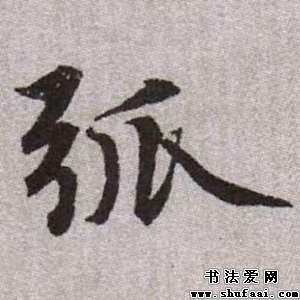 弧
书法爱网
www.shufaai.com